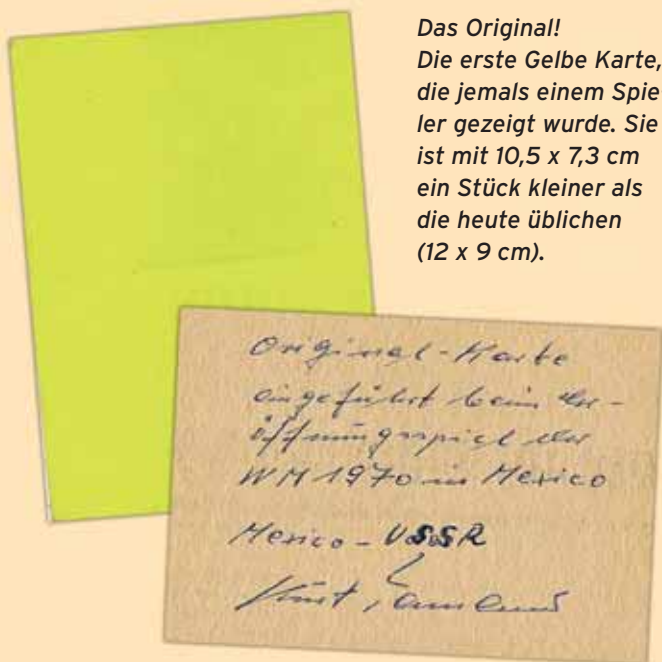 Das Original!
Die erste Gelbe Karte,
die jemals einem Spie
ler gezeigt wurde. Sie
ist mit 10,5 x 7,3 cm
ein Stück kleiner als
die heute üblichen
(12 x 9 cm).
Original-Karte
eingeführt beim Er-
öffnungsspiel der
WM 1970 in Mexico
Mexico - UdSSR